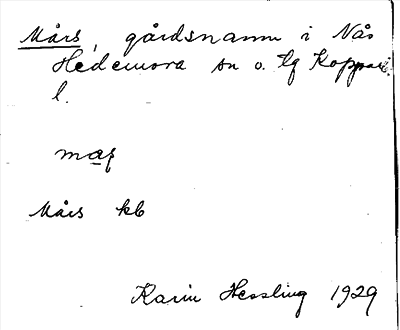 Mårs, gårdsnamn i Nås
Hedemora sn o. tg Kopparb.
l.
Mårs kb
Karin Hessling 1929